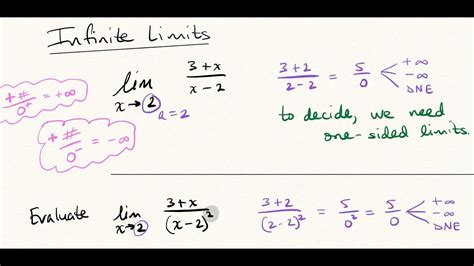 Infinite Limits
lim x→2 3+x / x-2
a=2
3+2 / 2-2 = 5 / 0 < +∞ -∞ DNE
+# / 0⁺ = +∞
+# / 0⁻ = -∞
to decide, we need
one-sided limits.
Evaluate lim x→2 3+x / (x-2)² 3+2 / (2-2)² = 5 / 0² = 5 / 0 < +∞ -∞ DNE